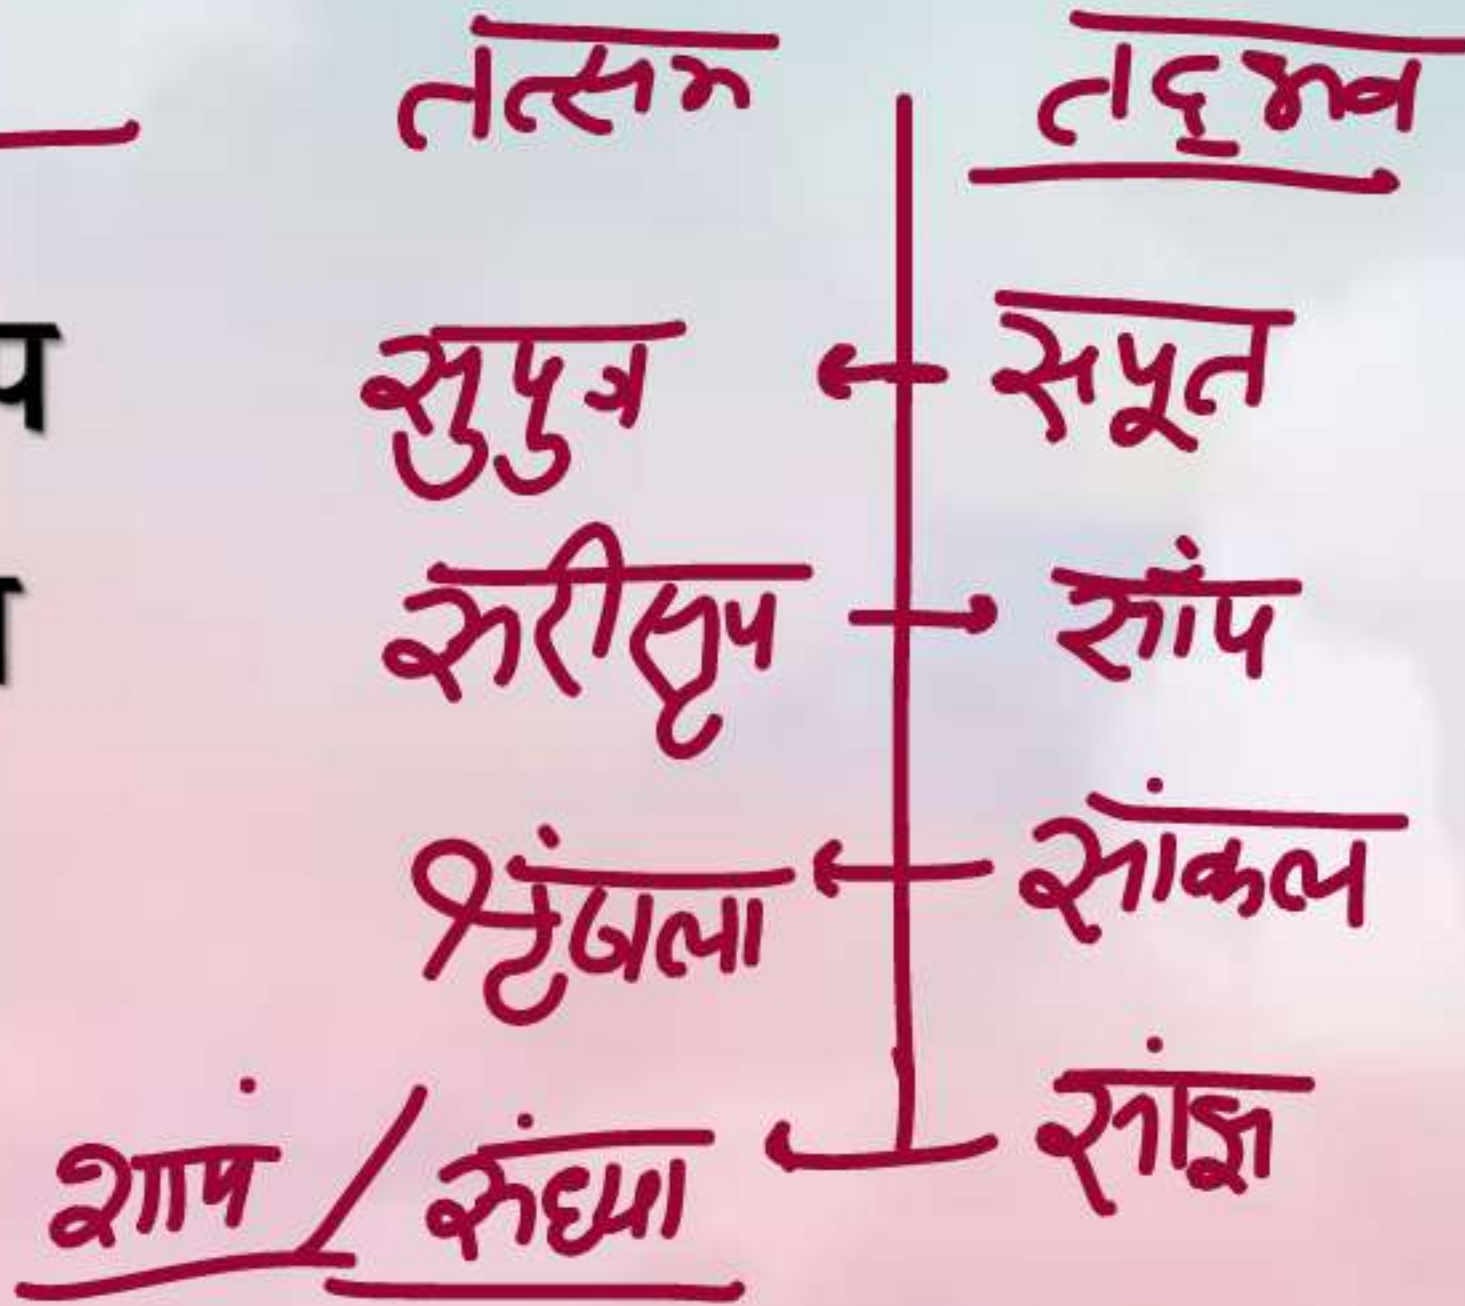 तत्सम तद्भव
प सुपुत्र सपूत
सरीसृप सांप
श्रृंखला सांकल
शाम / संध्या सांझ